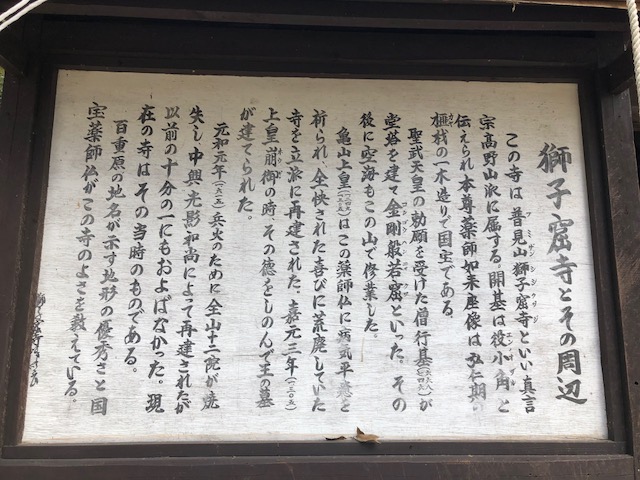 獅子窟寺とその周辺
この寺は普見山獅子窟寺といい真言
宗高野山派に属する。開基は役小角と
伝えられ本尊薬師如来座像は弘仁期の
榧材の一木造りで国宝である。
聖武天皇の勅願を受けた僧行基が
堂塔を建て金剛般若窟といった。その
後に空海もこの山で修業した。
亀山上皇はこの薬師仏に病気平癒を
祈られ、全快された喜びに荒廃していた
寺を立派に再建された。嘉元三年(一三〇五)
上皇崩御の時、その徳をしのんで王の墓
が建てられた。
元和元年(一六一五)兵火のために全山十二院が焼
失し、中興光影和尚によって再建されたが
以前の十分の一にもおよばなかった。現
在の寺はその当時のものである。
百重原の地名が示す地形の優秀さと国
宝薬師仏がこの寺のよさを教えている。